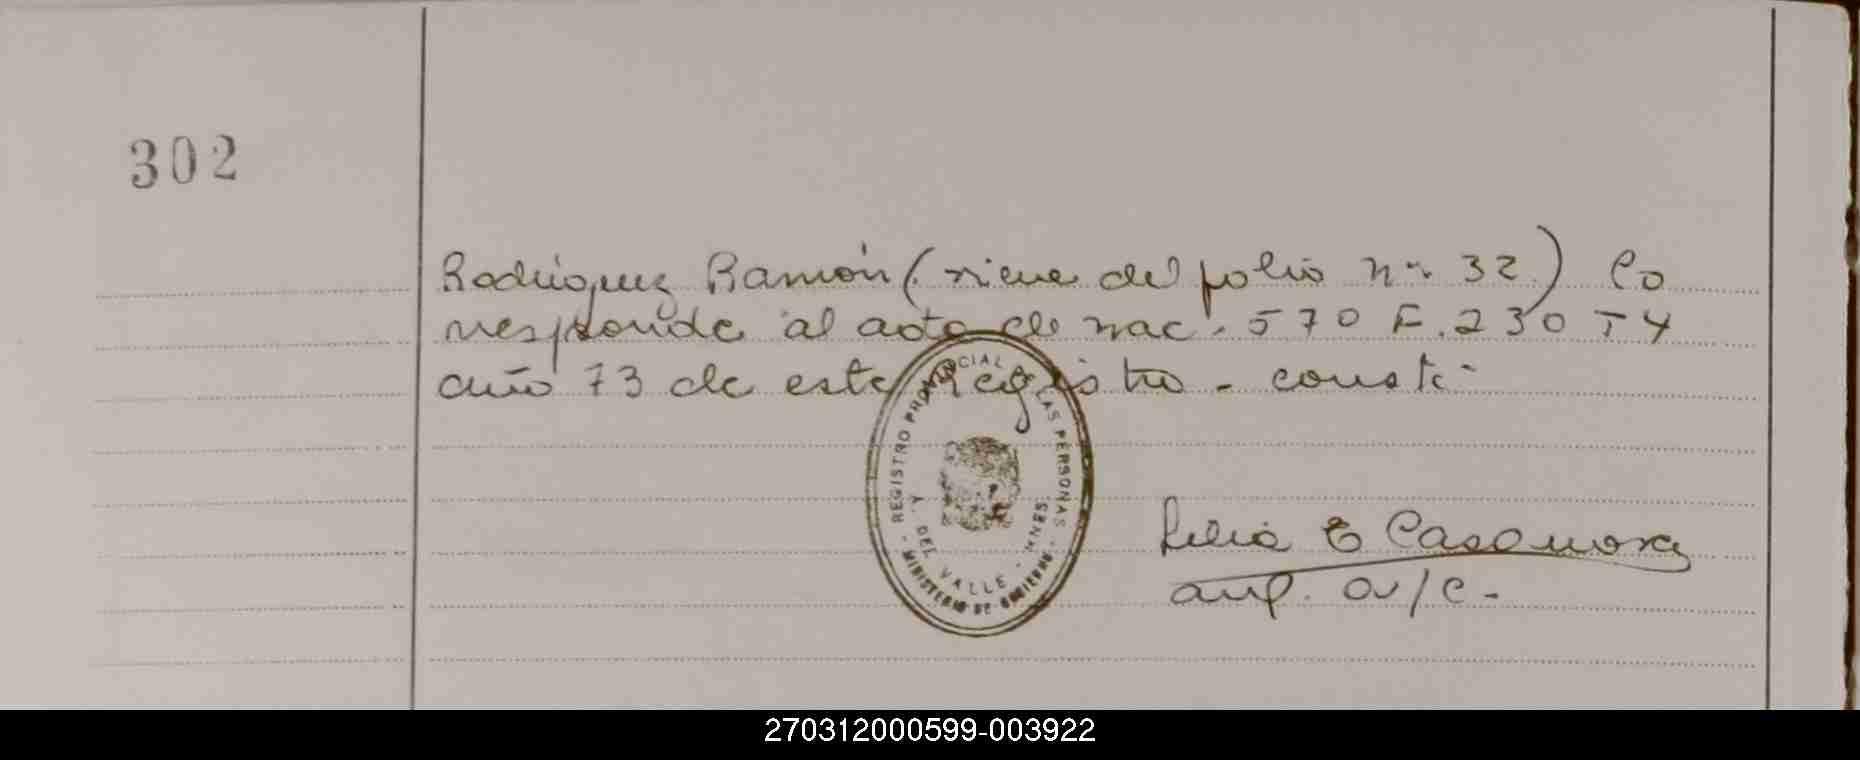 302
Rodríguez Ramón (viene del folio nº 32) Co
rresponde al acta de nac. 570 F. 230 T 4
año 73 de este Registro - conste -
REGISTRO PROVINCIAL DE LAS PERSONAS
DEL VALLE - MNES
MINISTERIO DE GOBIERNO
Lilia E Casanova
a/c.
270312000599-003922